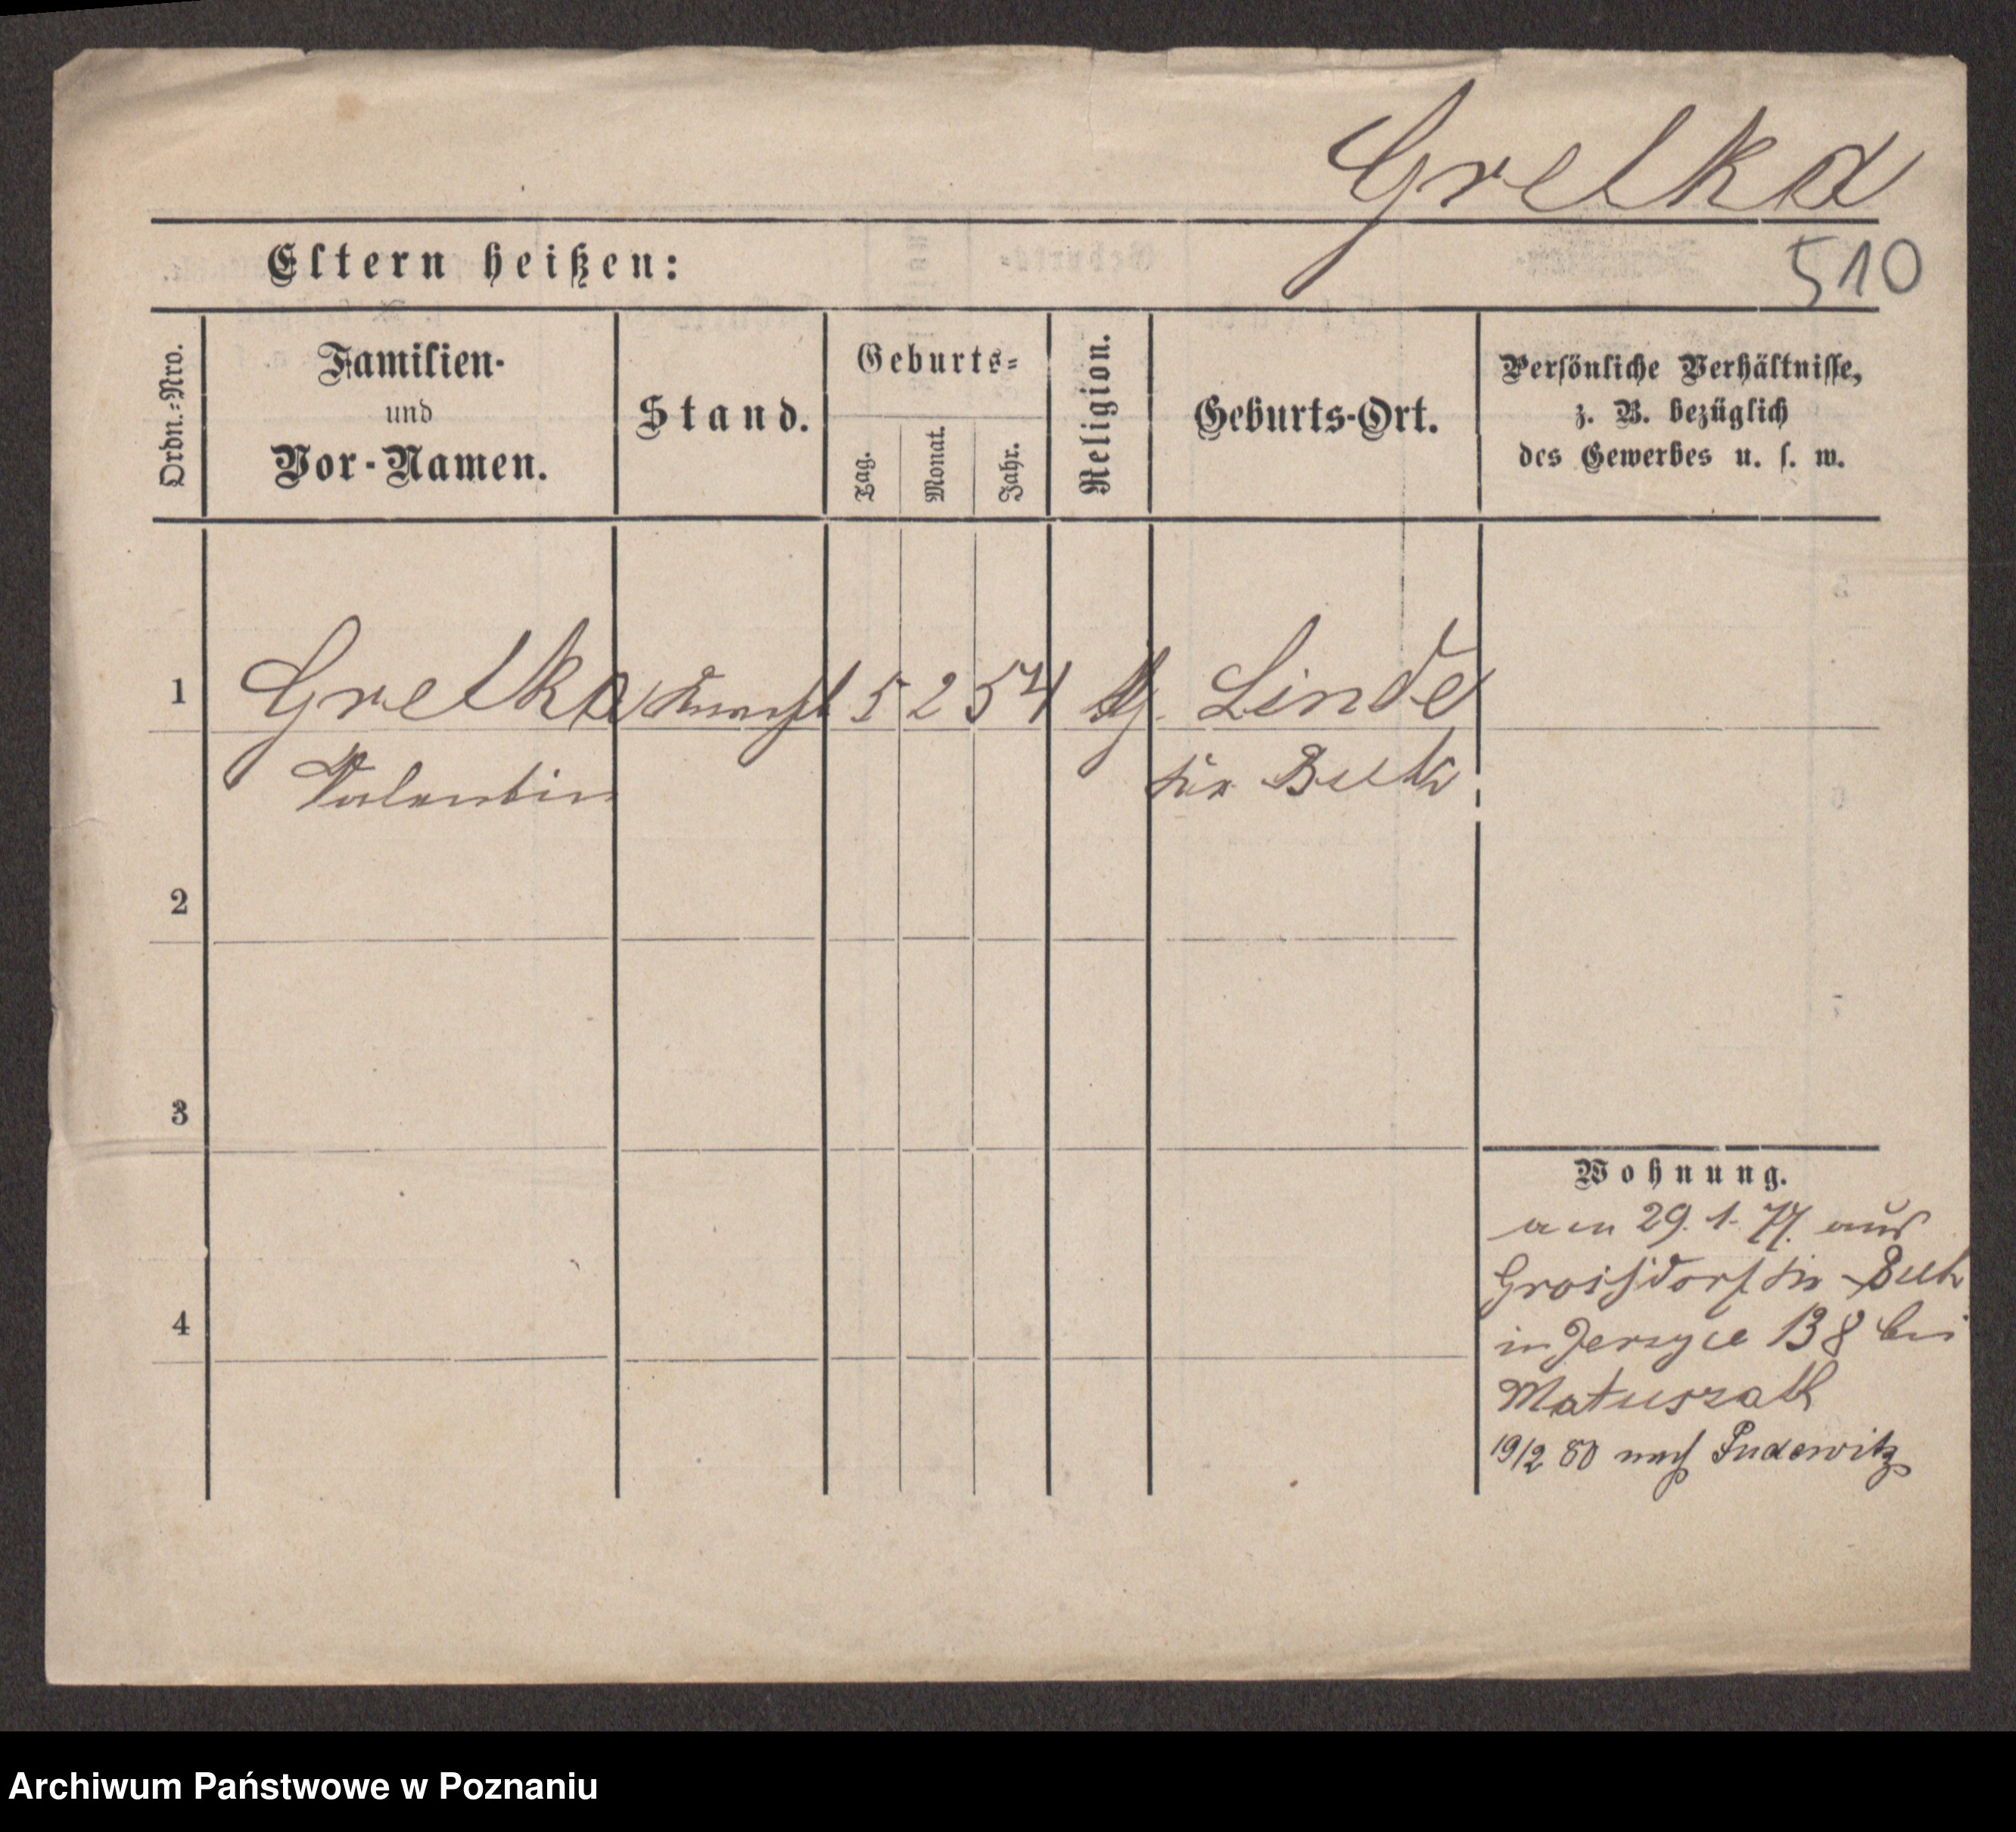 Gretka
510
Eltern heißen:
Ordn.-Nro.
Familien-
und
Vor-Namen.
Stand.
Geburts-
Tag.
Monat.
Jahr.
Religion.
Geburts-Ort.
Persönliche Verhältnisse,
z. B. bezüglich
des Gewerbes u. s. w.
1 Gretka Knecht 5 2 54 Linde
Valentin Krs Buk
2
3
4
Wohnung.
am 29. 1. 77. aus
Groisdorf Krs Buk
in Jerzyce 138 bei
Matuszak
19/2 80 nach Pudewitz
Archiwum Państwowe w Poznaniu